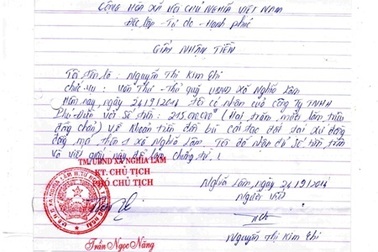 CỘNG HÒA XÃ HỘI CHỦ NGHĨA VIỆT NAM
Độc lập - Tự do - Hạnh phúc
GIẤY NHẬN TIỀN
Tôi tên là: Nguyễn Thị Kim Chi
chức vụ: văn thư - Thủ quỹ UBND xã Nghĩa Lâm
Hôm nay, ngày 26/9/2016 tôi có nhận của công ty TNHH
Phú Điền với số tiền: 215.000.000đ (Hai trăm, mười lăm triệu
đồng chẵn) về khoản tiền đền bù
xã Nghĩa Lâm. Tôi đã nhận đủ số tiền
và viết giấy này để làm chứng từ.
TM/UBND XÃ NGHĨA LÂM
KT. CHỦ TỊCH
PHÓ CHỦ TỊCH
Nghĩa Lâm, 26/9/2016
Người viết
Trần Ngọc Năng
Nguyễn Thị Kim Chi